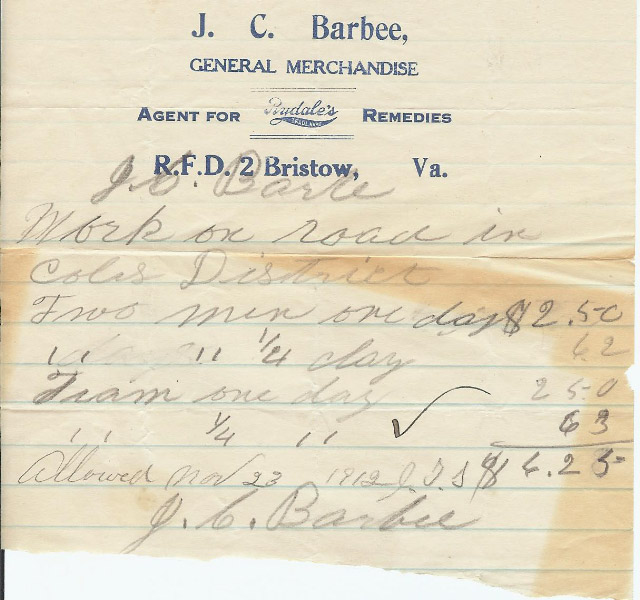 J. C. Barbee,
GENERAL MERCHANDISE
AGENT FOR Rydale's REMEDIES
R.F.D. 2 Bristow, Va.
J. C. Barbe
Work on road in
Coles District
Two men one day $2.50
" " 1/4 day 62
Team one day 2 50
" 1/4 " 63
Allowed Nov 23 1912 J. T. S $6.25
J. C. Barbee